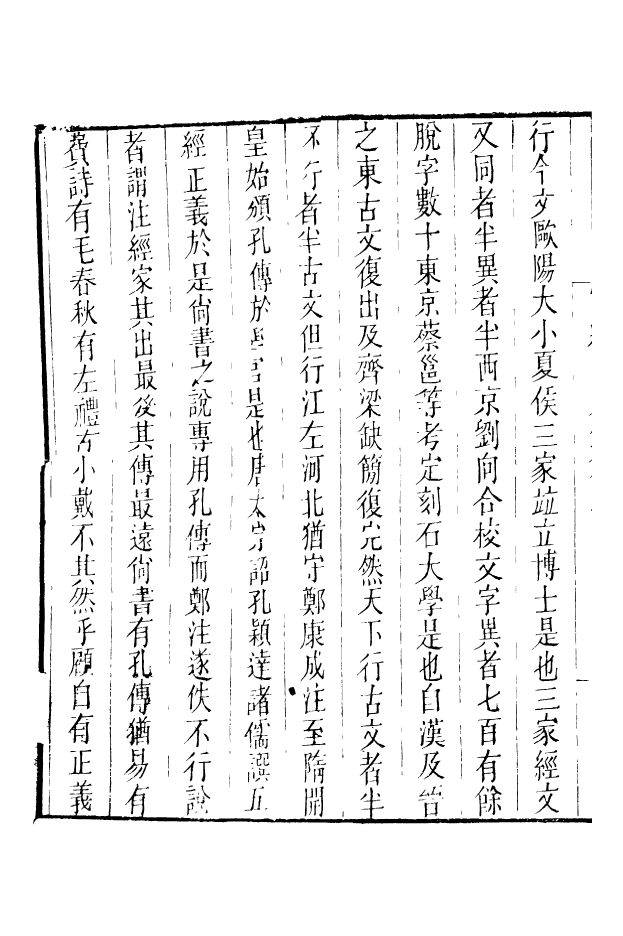 行今文歐陽大小夏侯三家竝立博士是也三家經文
又同者半異者半西京劉向合校文字異者七百有餘
脫字數十東京蔡邕等考定刻石大學是也自漢及晉
之東古文復出及齊梁缺簡復完然天下行古文者半
不行者半古文但行江左河北猶守鄭康成注至隋開
皇始頒孔傳於學官是也唐太宗詔孔穎達諸儒譔五
經正義於是尙書之說專用孔傳而鄭注遂佚不行說
者謂注經家其出最後其傳最遠尙書有孔傳猶易有
費詩有毛春秋有左禮有小戴不其然乎顧自有正義